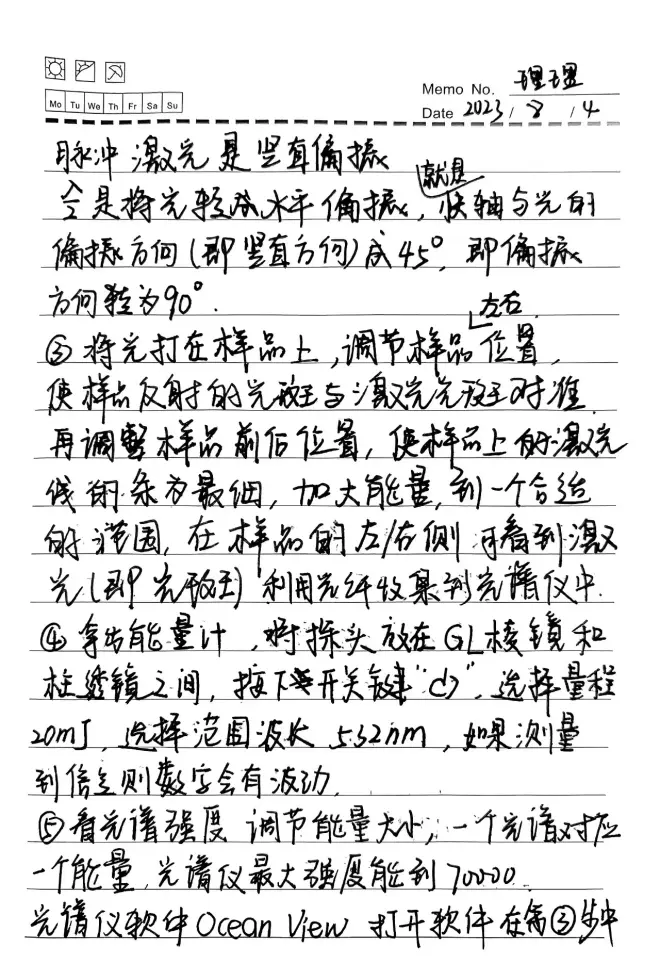 Mo Tu We Th Fr Sa Su
Memo No. 理理
Date 2023 / 8 / 4
脉冲激光是竖直偏振
令是将光转成水平偏振，就是快轴与光的
偏振方向（即竖直方向）成45°，即偏振
方向转为90°.
③ 将光打在样品上，调节样品左右位置，
使样品反射的光斑与激光光斑对准.
再调整样品前后位置，使样品上的激光
线的条为最细，加大能量，到一个合适
的范围，在样品的左/右侧可看到激
光（即光斑）利用光纤收集到光谱仪中.
④ 拿出能量计，将探头放在GL棱镜和
柱透镜之间，按下开关键“”，选择量程
20mJ，选择范围波长 532nm，如果测量
到信号则数字会有波动.
⑤ 看光谱强度 调节能量大小，一个光谱对应
一个能量，光谱仪最大强度能到70000.
光谱仪软件 Ocean View 打开软件 在第③步中